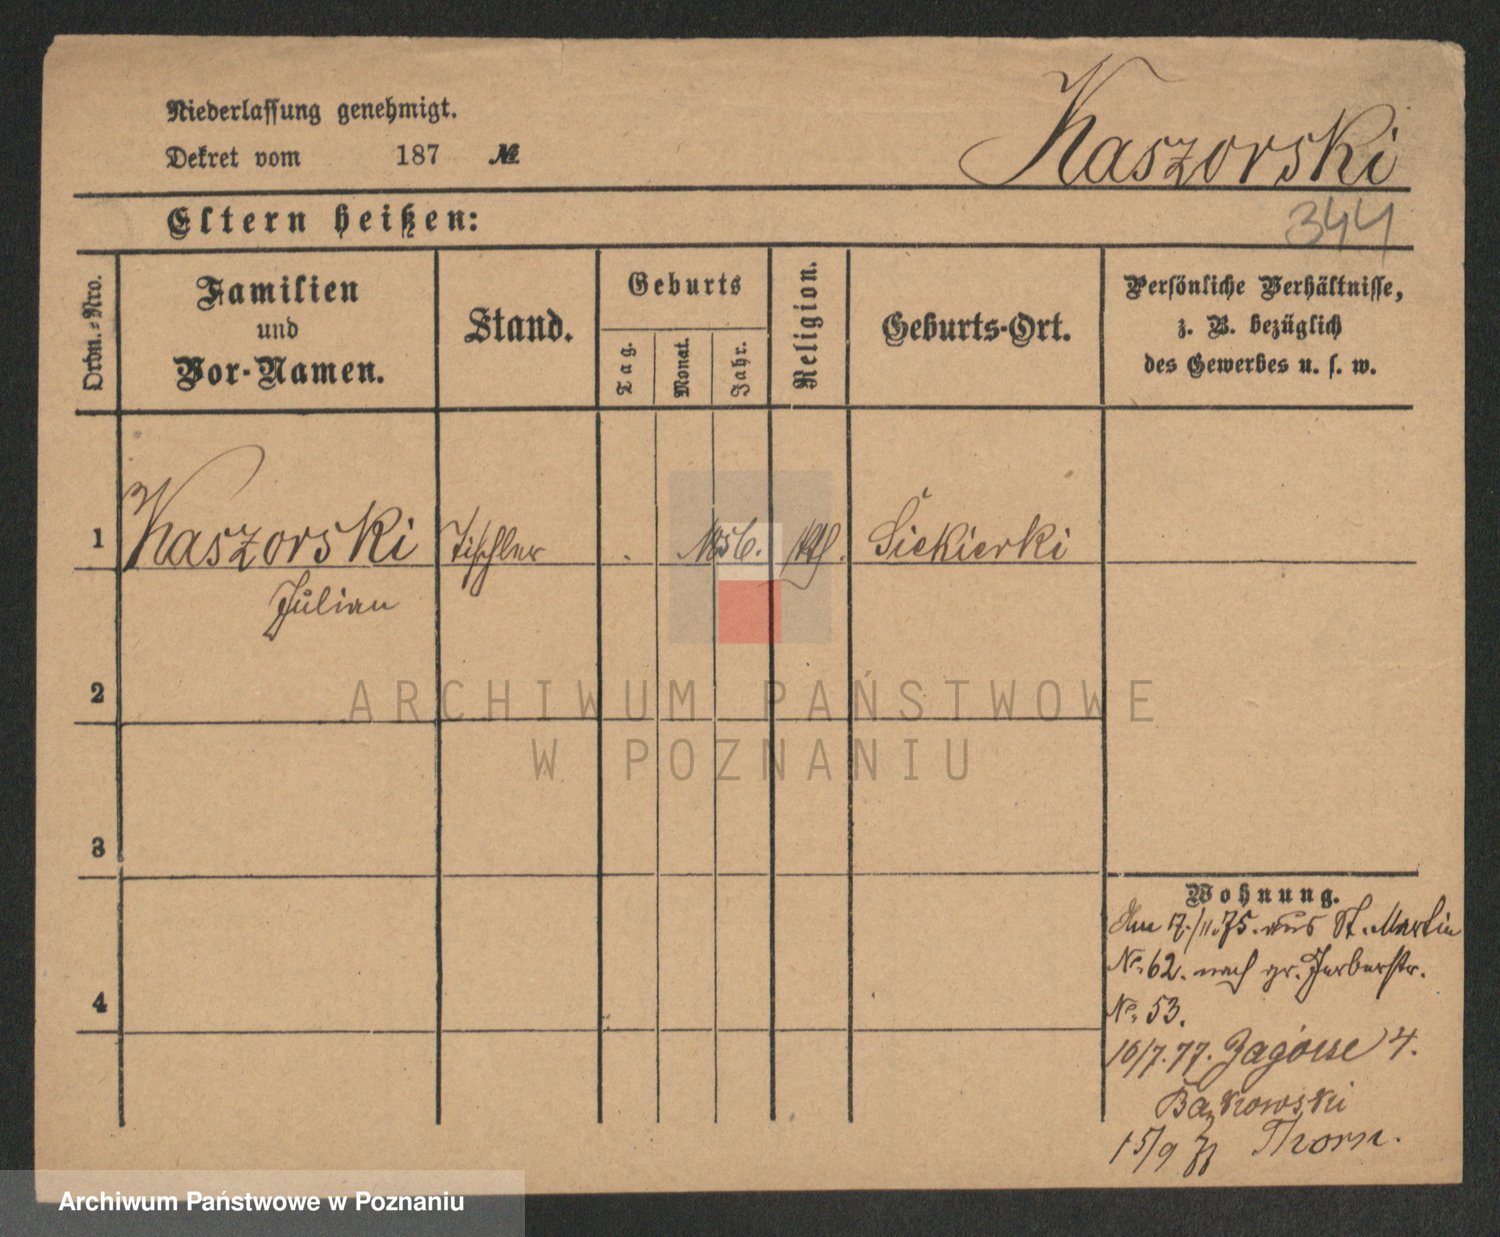 Niederlassung genehmigt.
Dekret vom 187 №
Kaszorski
344
Eltern heißen:
Ordn.-Nro.
Familien
und
Vor-Namen.
Stand.
Geburts
Tag.
Monat.
Jahr.
Religion.
Geburts-Ort.
Persönliche Verhältnisse,
z. B. bezüglich
des Gewerbes u. s. w.
1 Kaszorski Tischler 1856. kth. Siekierki
Julian
2
3
4
Wohnung.
Am 17./11.75. aus St. Martin
No. 62. nach gr. Gerberstr.
No. 53.
16/7.77. Zagórze 4.
Bąkowski
15/9 77 Thorn.
ARCHIWUM PAŃSTWOWE
W POZNANIU
Archiwum Państwowe w Poznaniu